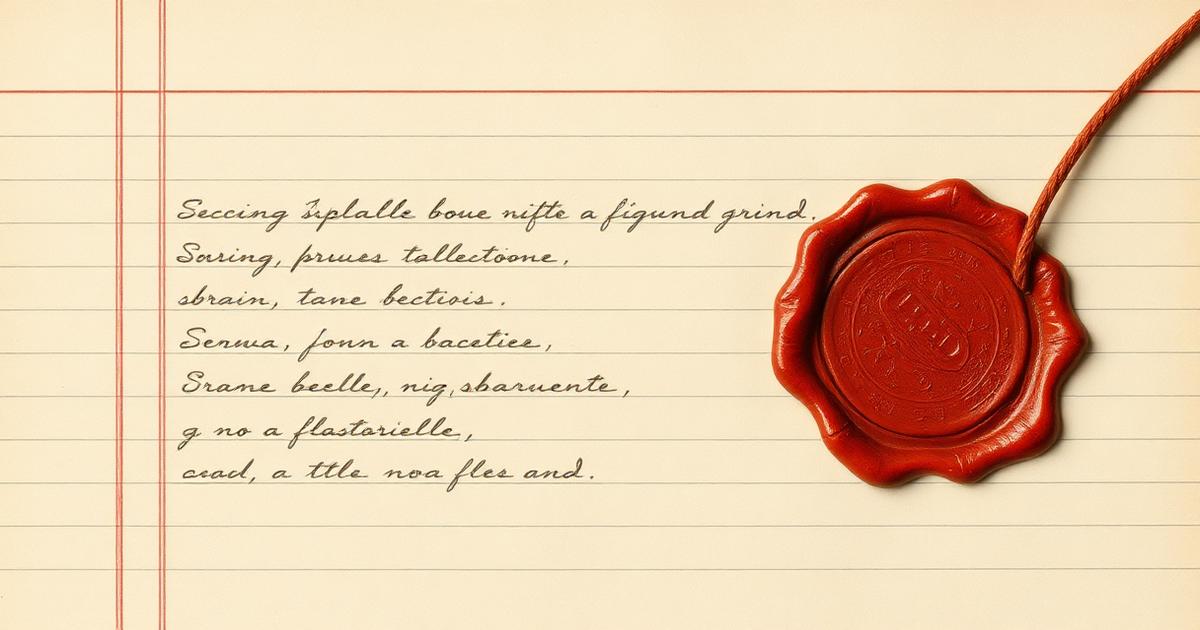 Seccing siplalle boue nifte a figund grind.
Soring, prues tallectoone,
sbrain, tane bectiois.
Senwa, fonn a bacetiee,
Srame beelle,, nig, sbaruente,
g no a flastorielle,,
cead, a ttle noa fles and.